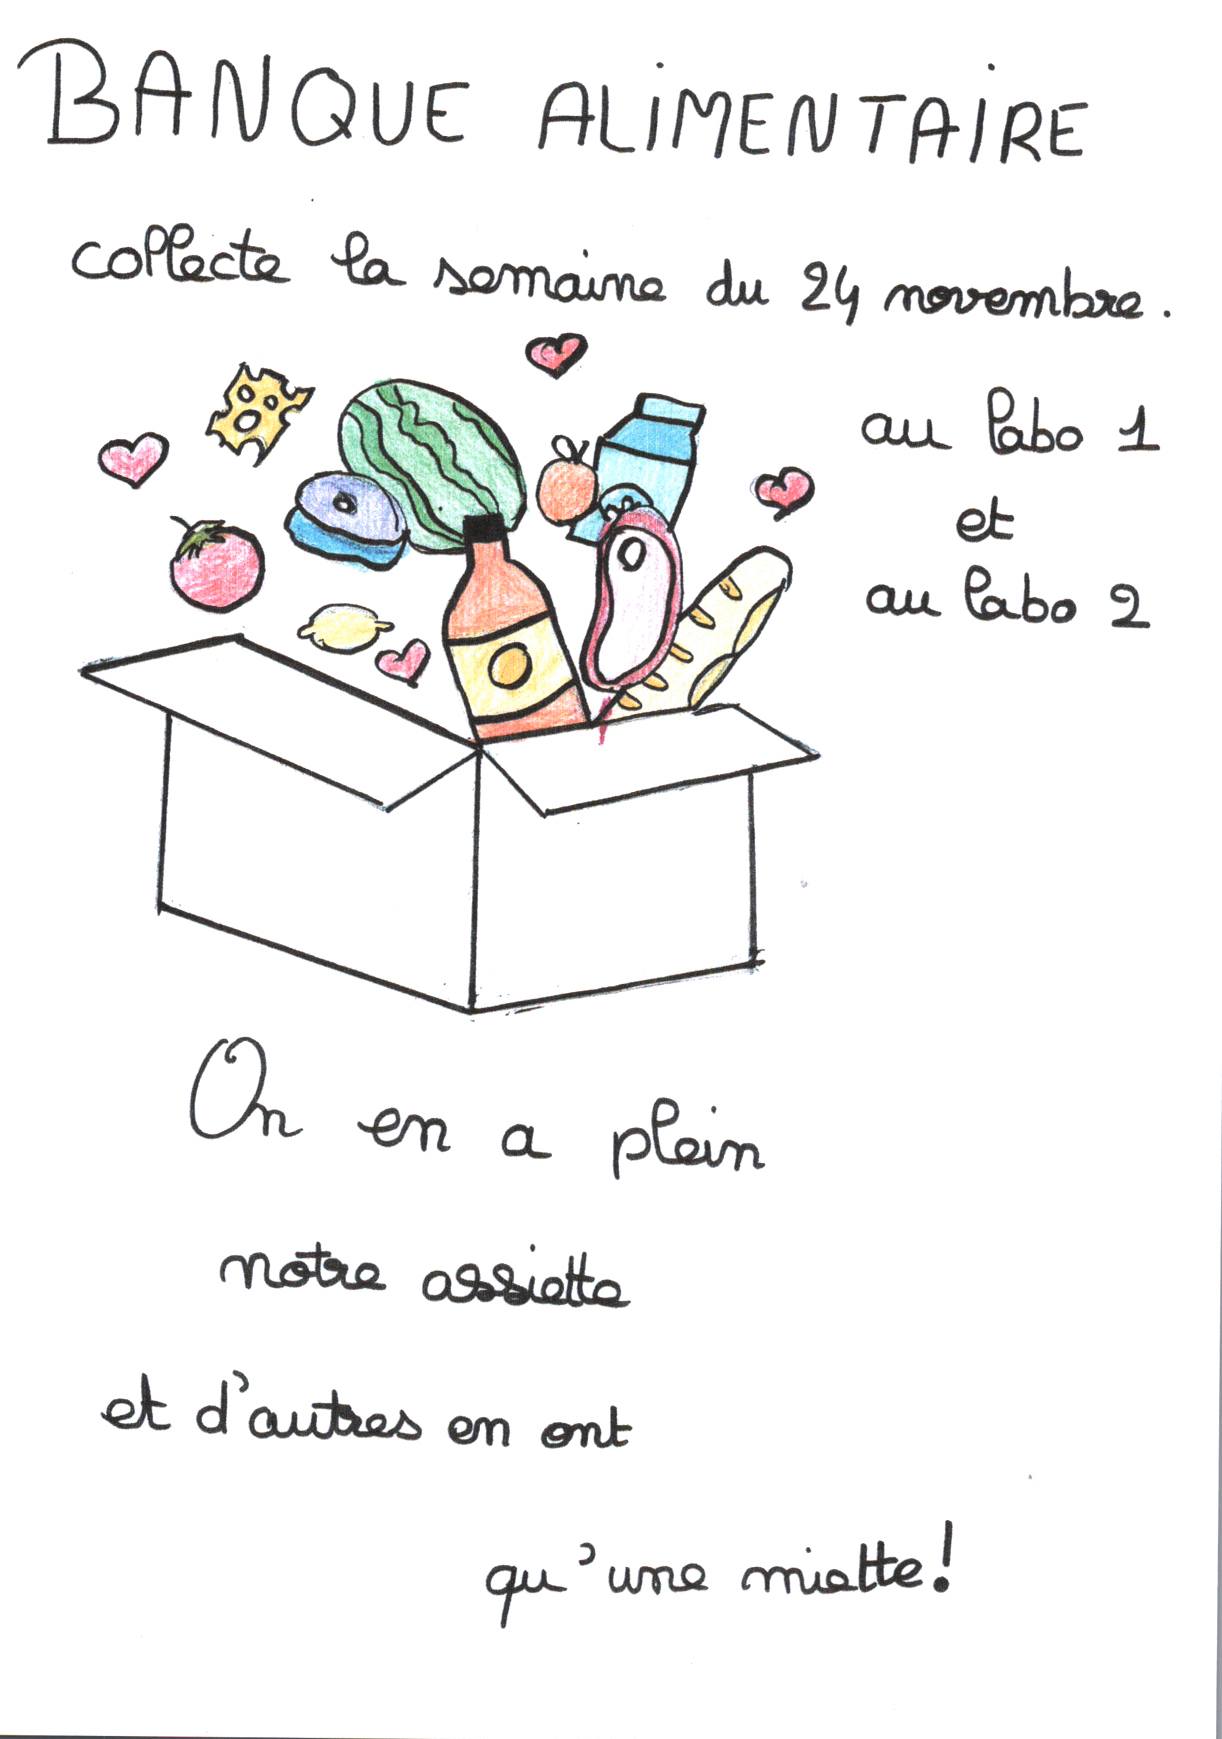 BANQUE ALIMENTAIRE
collecte la semaine du 24 novembre.
au labo 1
et
au labo 2
On en a plein
notre assiette
et d'autres en ont
qu'une miette!